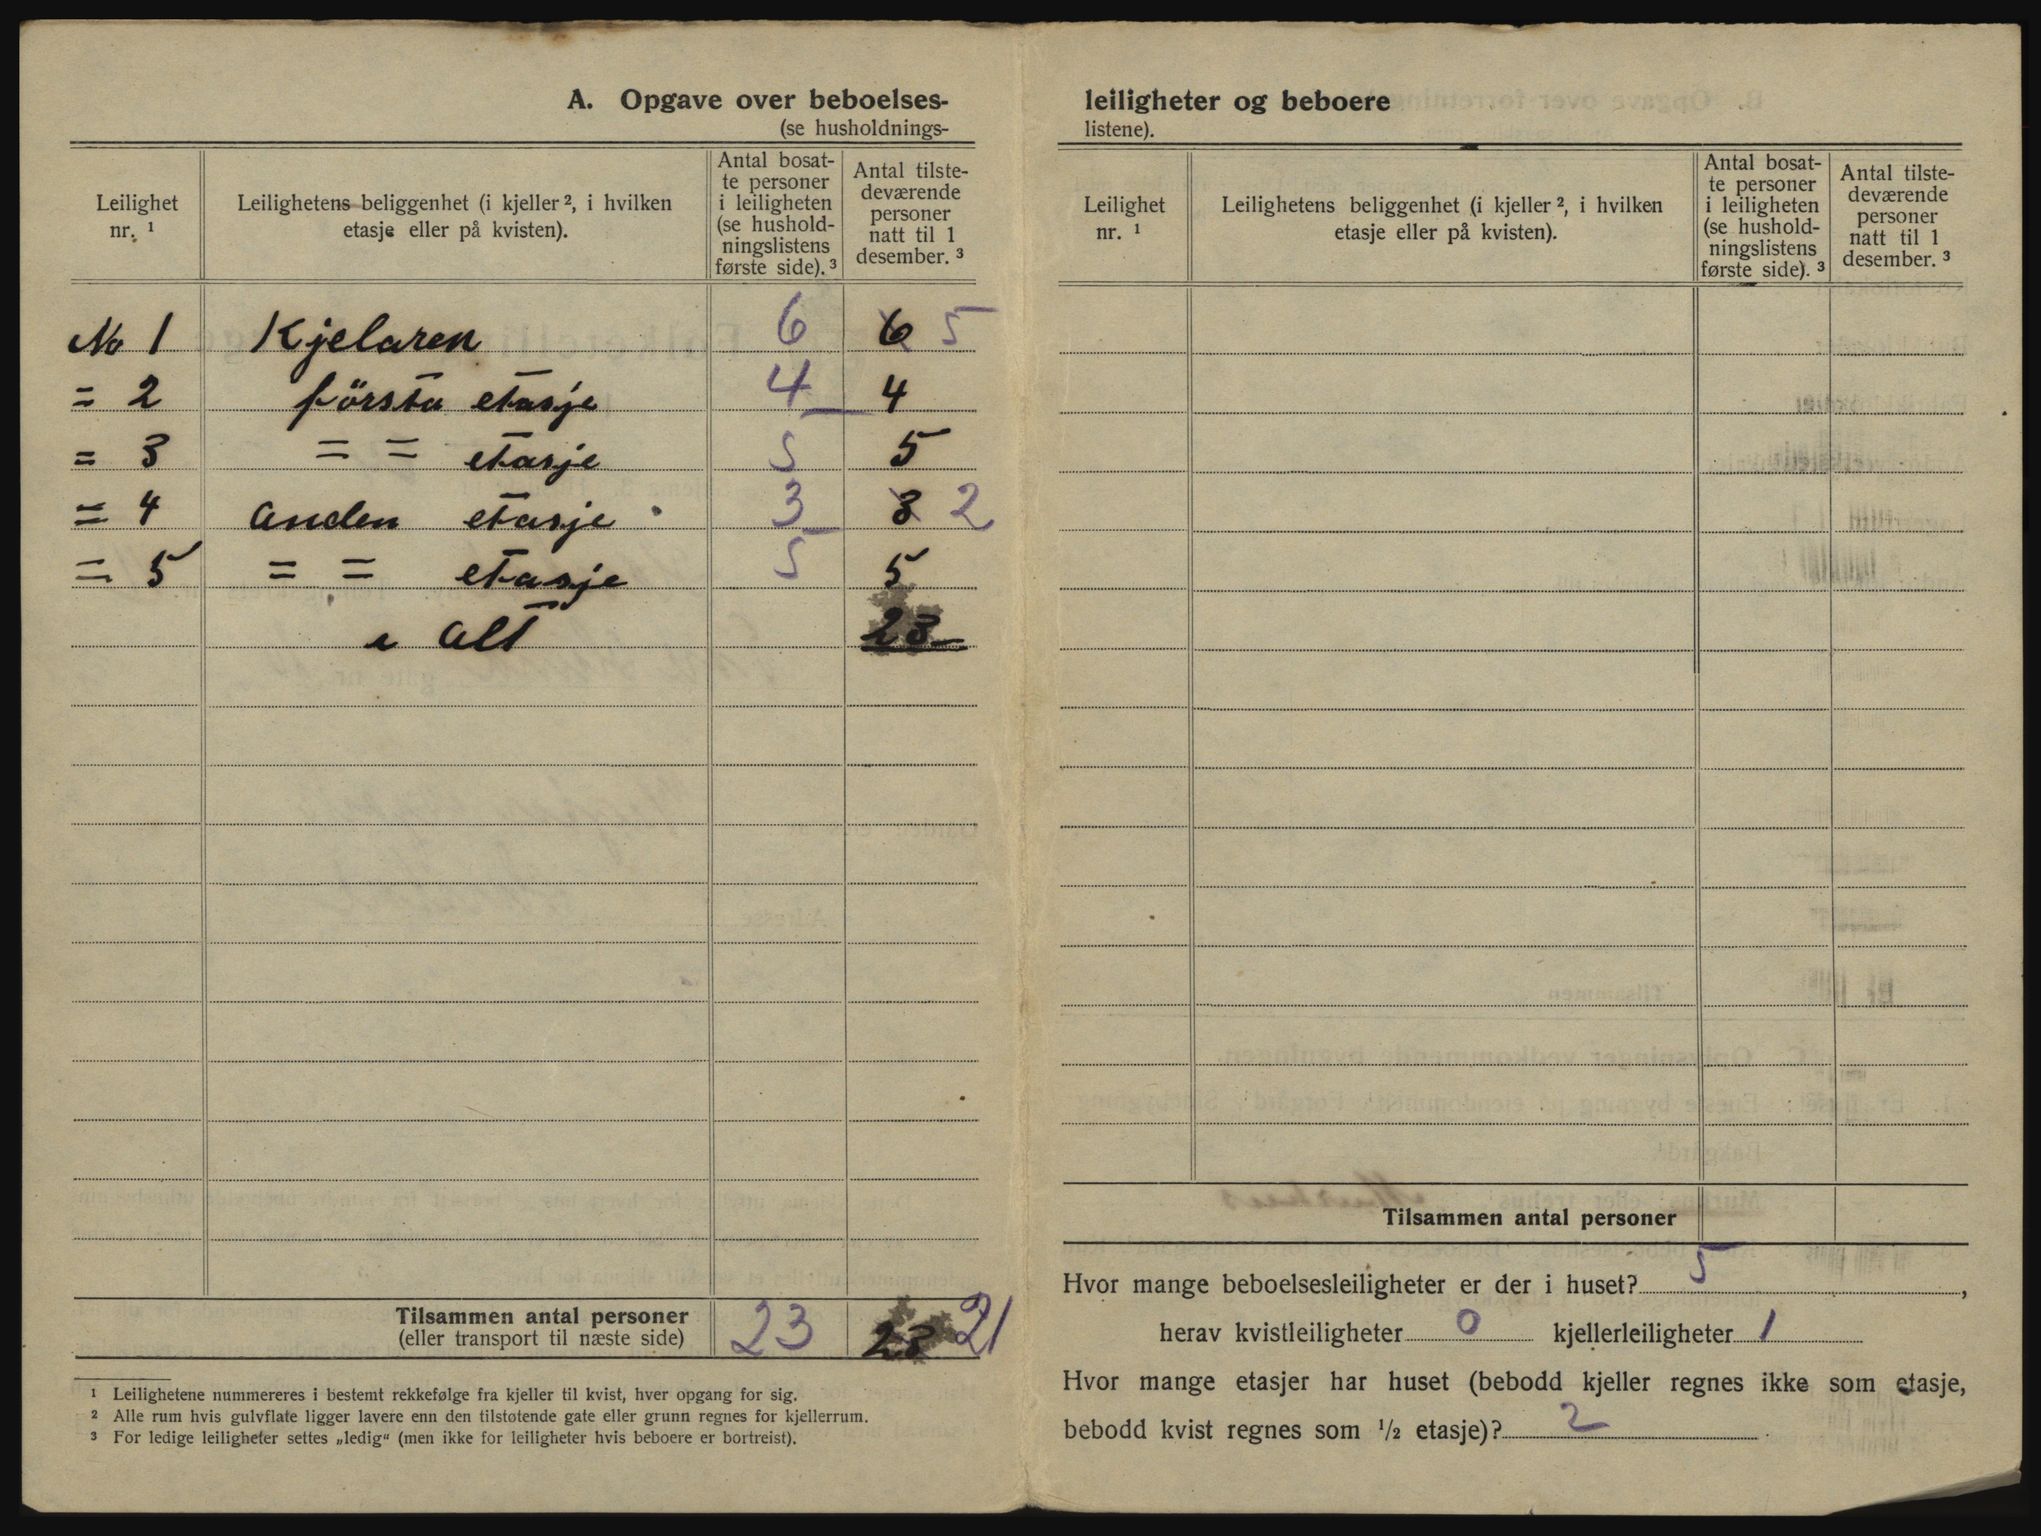 A. Opgave over beboelses-
(se husholdnings-
Leilighet nr. ¹
Leilighetens beliggenhet (i kjeller ², i hvilken etasje eller på kvisten).
Antal bosat-
te personer
i leiligheten
(se hushold-
ningslistens
første side). ³
Antal tilste-
deværende
personer
natt til 1
desember. ³
No 1 Kjelaren 6 6 5
= 2 första etasje 4 4
= 3 = = etasje 5 5
= 4 anden etasje 3 3 2
= 5 = = etasje 5 5
i alt 23
Tilsammen antal personer 23 23 21
(eller transport til næste side)
¹ Leilighetene nummereres i bestemt rekkefølge fra kjeller til kvist, hver opgang for sig.
² Alle rum hvis gulvflate ligger lavere enn den tilstøtende gate eller grunn regnes for kjellerrum.
³ For ledige leiligheter settes „ledig“ (men ikke for leiligheter hvis beboere er bortreist).
leiligheter og beboere
listene).
Leilighet nr. ¹
Leilighetens beliggenhet (i kjeller ², i hvilken etasje eller på kvisten).
Antal bosat-
te personer
i leiligheten
(se hushold-
ningslistens
første side). ³
Antal tilste-
deværende
personer
natt til 1
desember. ³
Tilsammen antal personer
Hvor mange beboelsesleiligheter er der i huset? 5,
herav kvistleiligheter 0 kjellerleiligheter 1
Hvor mange etasjer har huset (bebodd kjeller regnes ikke som etasje,
bebodd kvist regnes som ½ etasje)? 2